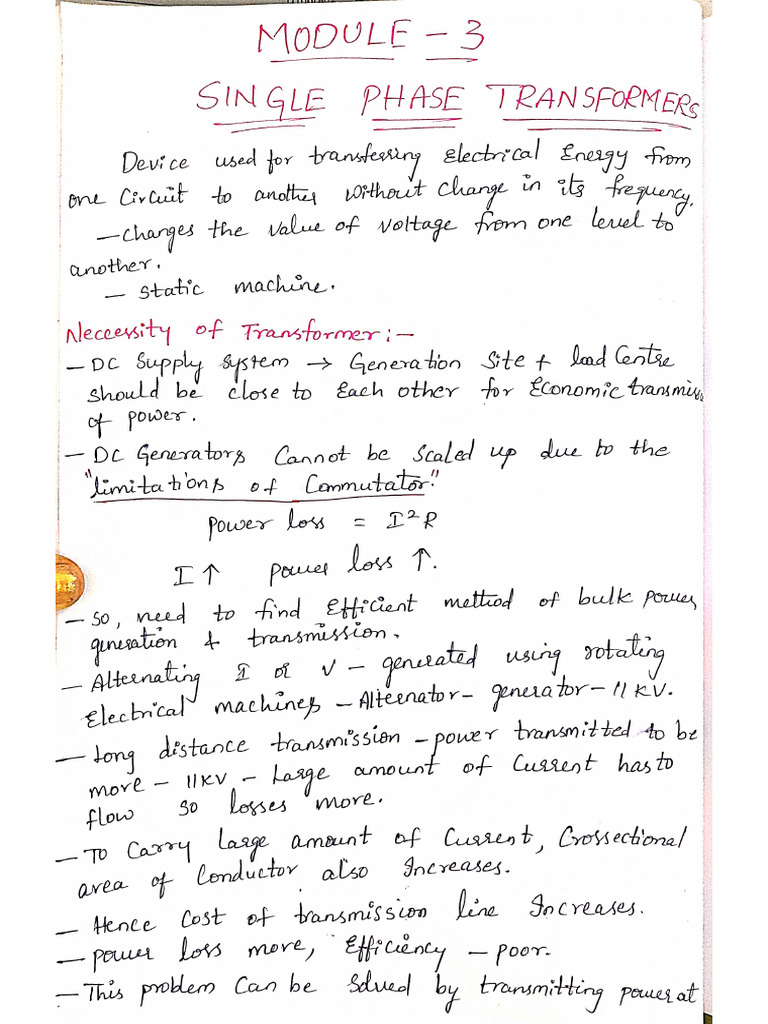 MODULE - 3
SINGLE PHASE TRANSFORMERS
Device used for transferring Electrical Energy from
one Circuit to another without change in its frequency.
- changes the value of voltage from one level to
another.
- static machine.
Neccessity of Transformer :-
- DC Supply system → Generation Site + load Centre
should be close to Each other for Economic transmiss
of power.
- DC Generators Cannot be scaled up due to the
"limitations of Commutator."
power loss = I²R
I ↑ power loss ↑.
- so, need to find Efficient method of bulk power
generation & transmission.
- Alternating I or V - generated using rotating
Electrical machines - Alternator - generator - 11 KV.
- Long distance transmission - power transmitted to be
more - 11KV - Large amount of Current has to
flow so losses more.
- To Carry Large amount of Current, Crossectional
area of Conductor also Increases.
- Hence Cost of transmission line Increases.
- power loss more, Efficiency - poor.
- This problem Can be solved by transmitting power at